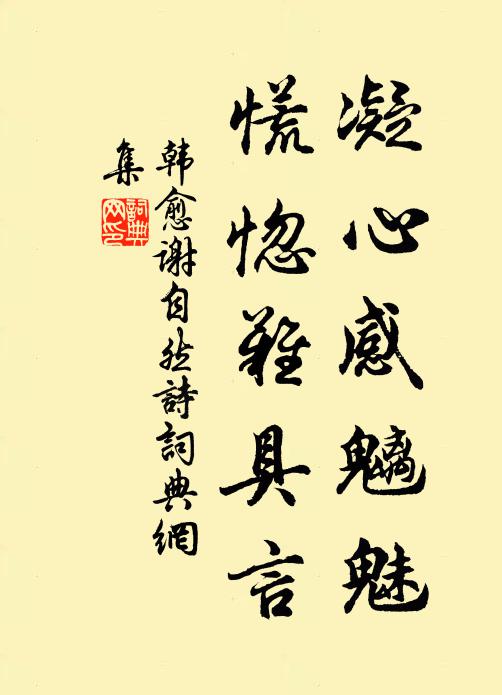 凝心感魑魅
慌惚難具言
韩愈谢自然詩詞典網
集
詞典网印